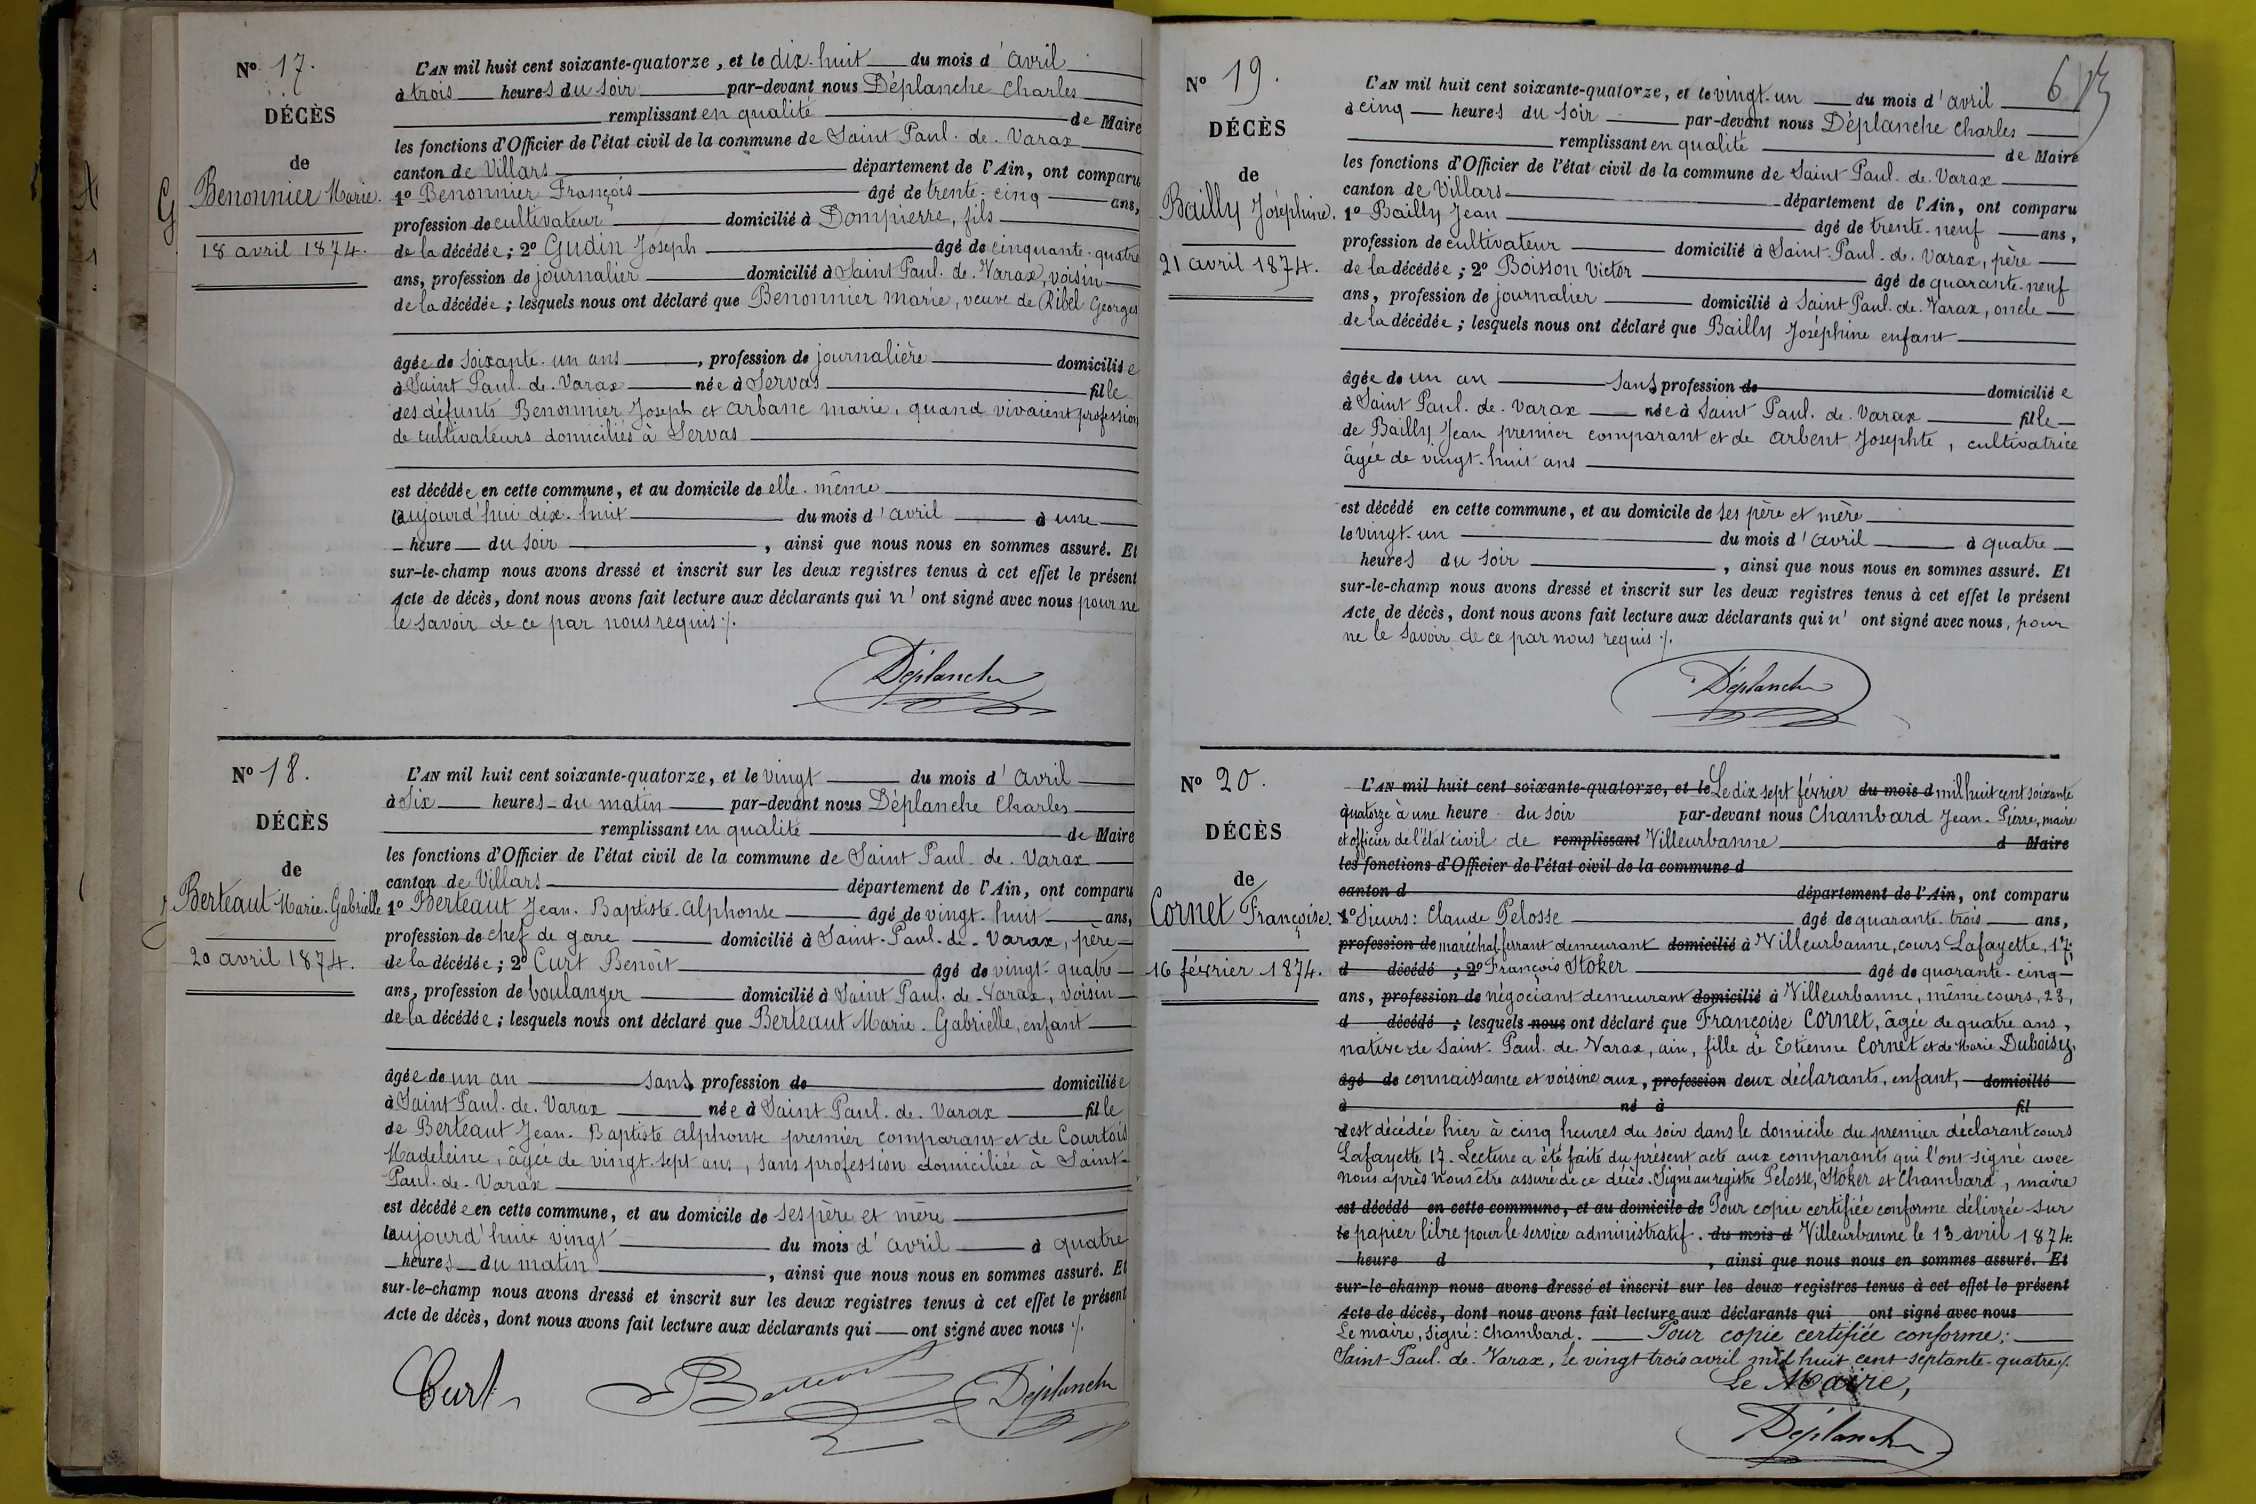 Nº 17.
DÉCÈS
de
Benonnier Marie.
18 avril 1874.
L'AN mil huit cent soixante-quatorze, et le dix-huit du mois d'avril
à trois heures du soir par-devant nous Déplanche Charles
remplissant en qualité de Maire
les fonctions d'Officier de l'état civil de la commune de Saint Paul. de. Varax
canton de Villars département de l'Ain, ont comparu
1º Benonnier François âgé de trente-cinq ans,
profession de cultivateur domicilié à Dompierre, fils
de la décédée; 2º Gudin Joseph âgé de cinquante-quatre
ans, profession de journalier domicilié à Saint Paul. de. Varax, voisin
de la décédée; lesquels nous ont déclaré que Benonnier Marie, veuve de Ribel Georges
âgée de soixante-un ans, profession de journalière domiciliée
à Saint Paul. de. Varax née à Servas fille
des défunts Benonnier Joseph et Arbanc Marie, quand vivaient profession
de cultivateurs domiciliés à Servas
est décédée en cette commune, et au domicile de elle-même
aujourd'hui dix-huit du mois d'avril à une
heure du soir, ainsi que nous nous en sommes assuré. Et
sur-le-champ nous avons dressé et inscrit sur les deux registres tenus à cet effet le présent
Acte de décès, dont nous avons fait lecture aux déclarants qui n'ont signé avec nous pour ne
le savoir de ce par nous requis ./.
Déplanche
Nº 18.
DÉCÈS
de
Berteaut Marie-Gabrielle
20 avril 1874.
L'AN mil huit cent soixante-quatorze, et le vingt du mois d'avril
à six heures du matin par-devant nous Déplanche Charles
remplissant en qualité de Maire
les fonctions d'Officier de l'état civil de la commune de Saint Paul. de. Varax
canton de Villars département de l'Ain, ont comparu
1º Berteaut Jean-Baptiste-Alphonse âgé de vingt-huit ans,
profession de chef de gare domicilié à Saint-Paul-de-Varax, père
de la décédée; 2º Curt Benoît âgé de vingt-quatre
ans, profession de boulanger domicilié à Saint Paul. de. Varax, voisin
de la décédée; lesquels nous ont déclaré que Berteaut Marie-Gabrielle, enfant
âgée de un an sans profession de domiciliée
à Saint Paul. de. Varax née à Saint Paul. de. Varax fille
de Berteaut Jean-Baptiste Alphonse premier comparant et de Courtois
Madeleine, âgée de vingt-sept ans, sans profession domiciliée à Saint-
Paul-de-Varax
est décédée en cette commune, et au domicile de ses père et mère
aujourd'hui vingt du mois d'avril à quatre
heures du matin, ainsi que nous nous en sommes assuré. Et
sur-le-champ nous avons dressé et inscrit sur les deux registres tenus à cet effet le présent
Acte de décès, dont nous avons fait lecture aux déclarants qui ont signé avec nous ./.
Curt Berteaut Déplanche
6
Nº 19.
DÉCÈS
de
Bailly Joséphine.
21 avril 1874.
L'AN mil huit cent soixante-quatorze, et le vingt-un du mois d'avril
à cinq heures du soir par-devant nous Déplanche Charles
remplissant en qualité de Maire
les fonctions d'Officier de l'état civil de la commune de Saint Paul. de. Varax
canton de Villars département de l'Ain, ont comparu
1º Bailly Jean âgé de trente-neuf ans,
profession de cultivateur domicilié à Saint-Paul. de. Varax, père
de la décédée; 2º Boisson Victor âgé de quarante-neuf
ans, profession de journalier domicilié à Saint Paul. de. Varax, oncle
de la décédée; lesquels nous ont déclaré que Bailly Joséphine enfant
âgée de un an sans profession de domiciliée
à Saint Paul. de. Varax née à Saint Paul. de. Varax fille
de Bailly Jean premier comparant et de Arbent Josephte, cultivatrice
âgée de vingt-huit ans
est décédé en cette commune, et au domicile de ses père et mère
le vingt-un du mois d'avril à quatre
heures du soir, ainsi que nous nous en sommes assuré. Et
sur-le-champ nous avons dressé et inscrit sur les deux registres tenus à cet effet le présent
Acte de décès, dont nous avons fait lecture aux déclarants qui n'ont signé avec nous, pour
ne le savoir de ce par nous requis ./.
Déplanche
Nº 20.
DÉCÈS
de
Cornet Françoise.
16 février 1874.
L'AN mil huit cent soixante-quatorze, et le Le dix sept février du mois d mil huit cent soixante
quatorze à une heure du soir par-devant nous Chambard Jean-Pierre, maire
et officier de l'état civil de remplissant Villeurbanne d Maire
les fonctions d'Officier de l'état civil de la commune d
canton d département de l'Ain, ont comparu
1º Sieurs: Claude Pelosse âgé de quarante-trois ans,
profession de maréchal-ferrant demeurant domicilié à Villeurbanne, cours Lafayette, 17;
d décédé; 2º François Stoker âgé de quarante-cinq
ans, profession de négociant demeurant domicilié à Villeurbanne, même cours, 23,
d décédé; lesquels nous ont déclaré que Françoise Cornet, âgée de quatre ans,
native de Saint-Paul. de. Varax, ain, fille de Etienne Cornet et de Marie Duboisy,
âgé de connaissance et voisine aux, profession deux déclarants, enfant, domicilié
à né à fil
d est décédée hier à cinq heures du soir dans le domicile du premier déclarant cours
Lafayette 17. Lecture a été faite du présent acte aux comparants qui l'ont signé avec
nous après nous être assuré de ce décès. Signé au registre Pelosse, Stoker et Chambard, maire
est décédé en cette commune, et au domicile de Pour copie certifiée conforme délivrée sur
le papier libre pour le service administratif. du mois d Villeurbanne le 13 avril 1874.
heure d, ainsi que nous nous en sommes assuré. Et
sur-le-champ nous avons dressé et inscrit sur les deux registres tenus à cet effet le présent
Acte de décès, dont nous avons fait lecture aux déclarants qui ont signé avec nous
Le maire, signé: Chambard. Pour copie certifiée conforme;
Saint Paul. de. Varax, le vingt trois avril mil huit cent septante-quatre ./.
Le Maire,
Déplanche